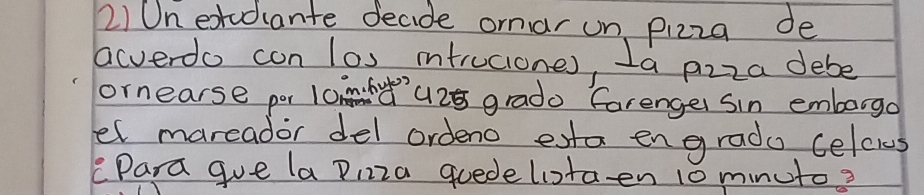 2) Un estudiante decide ornar un pizza de
acuerdo con las intruciones, la pizza debe
ornearse por 10 minutos a 425 grado Farengei sin embargo
el mareador del ordeno esta en grado Celcius
¿Para que la Pizza quede lista en 10 minuto?